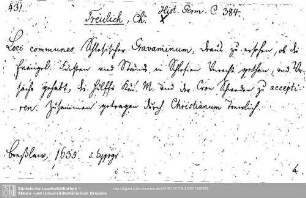 431.
Hist. Germ. C 384.
Treulich, Ch:
Loci communes Schlesischer Gravaminum, draus zu ersehen, ob die
Evangel. Fürsten und Stände in Schlesien Unrecht gethan, und Ur-
sache gehabt, die Hülffe Kön. M. und der Cron Schweden zu accepti-
ren. Zusammen getragen durch Christianum Treulich.
Breßlaw, 1633. s. typogr.
4.
Sächsische Landesbibliothek -
Staats- und Universitätsbibliothek Dresden